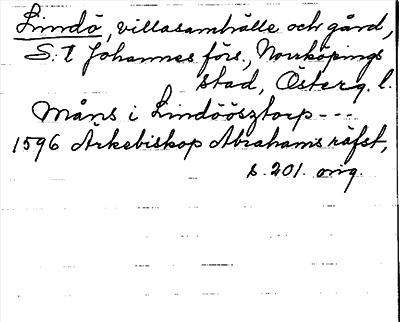 Lindö, villasamhälle och gård,
S:t Johannes förs., Norrköpings
stad, Österg. l.
Måns i Lindöösztorp ---
1596 Ärkebiskop Abrahams räfst,
s. 201. orig.